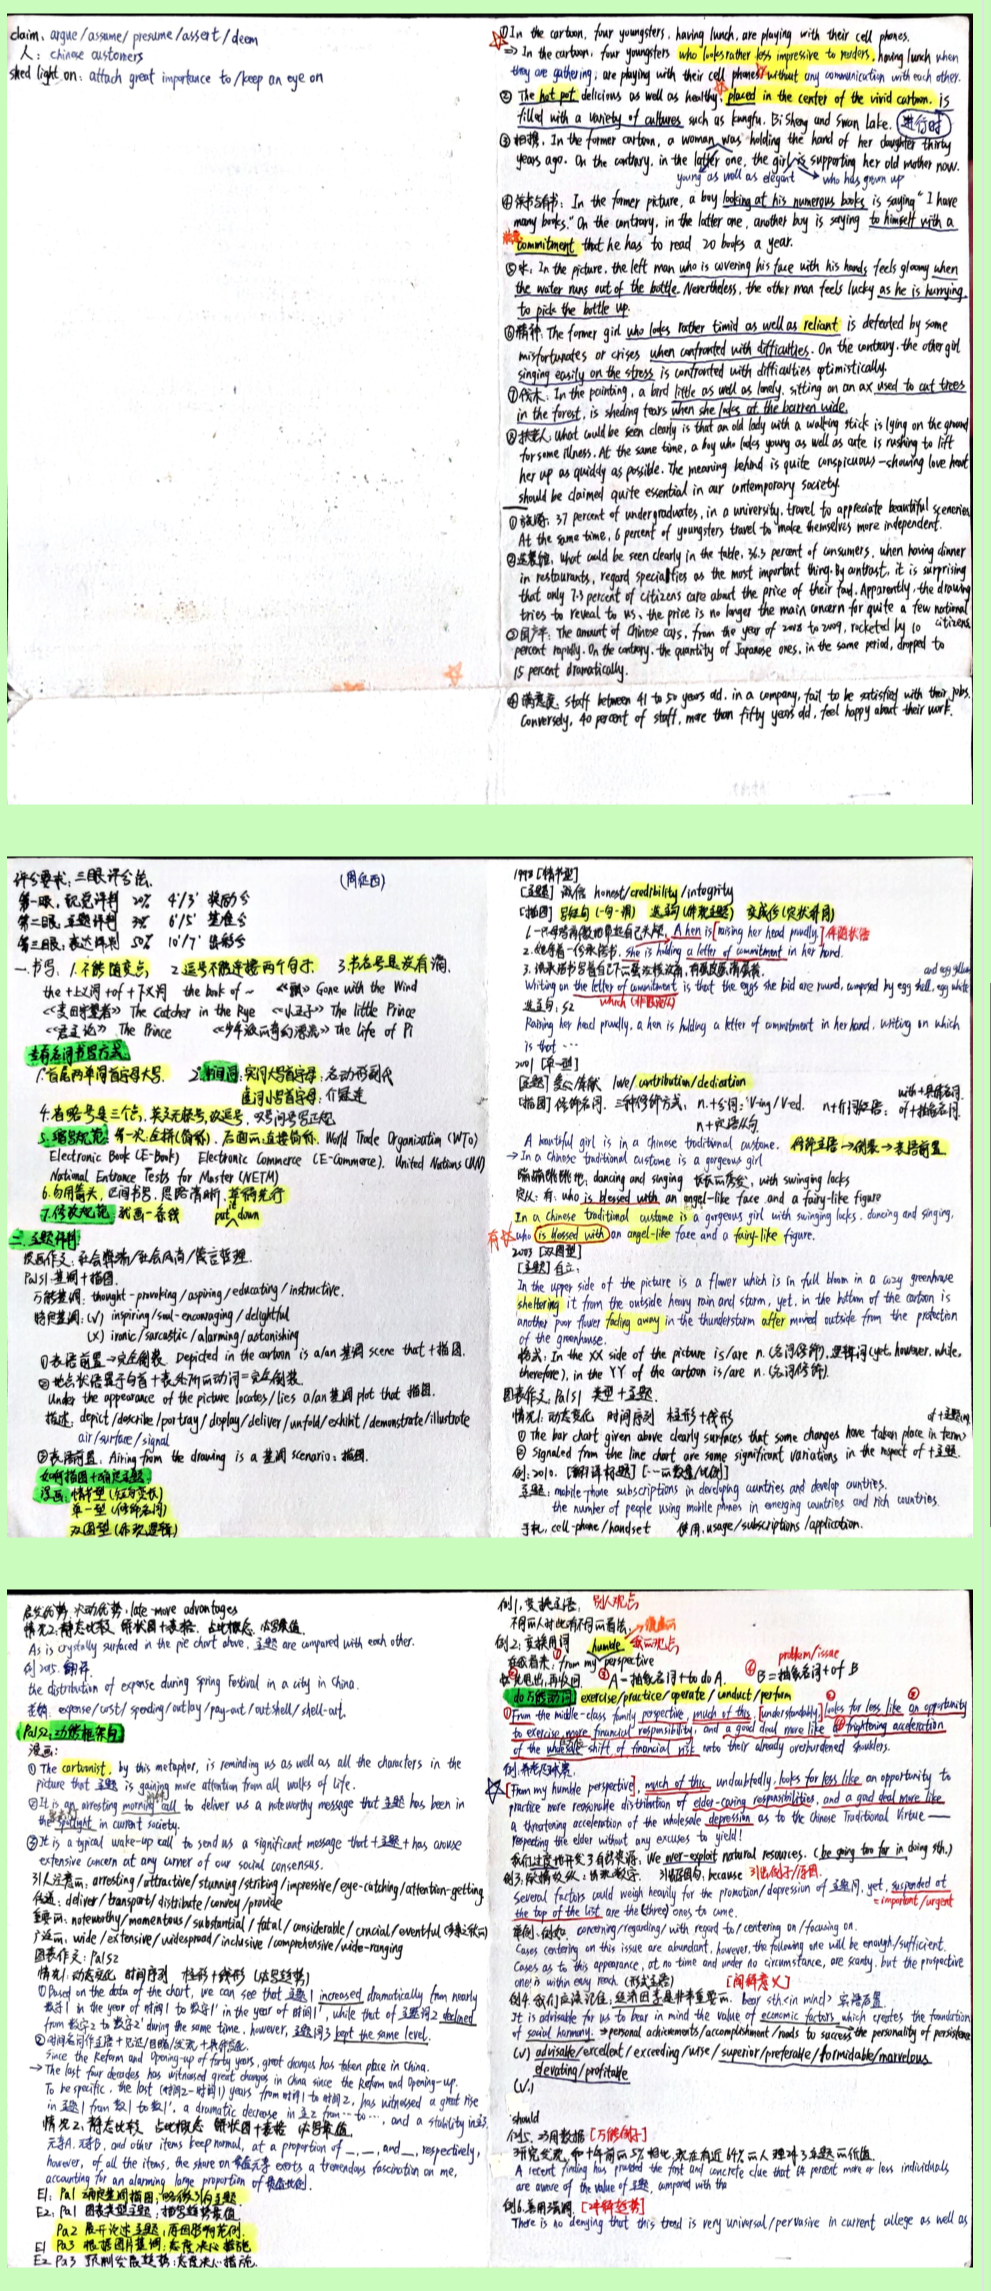 claim, argue/assume/presume/assert/deem
人: chinese customers
shed light on: attach great importance to/keep an eye on
①In the cartoon, four youngsters, having lunch, are playing with their cell phones.
⇒ In the cartoon, four youngsters who looks rather less impressive to readers, having lunch when
they are gathering, are playing with their cell phones without any communication with each other.
② The hot pot delicious as well as healthy, placed in the center of the vivid cartoon, is
filled with a variety of cultures such as kungfu, Bi Sheng and Swan Lake. 进行时
③相携, In the former cartoon, a woman was holding the hand of her daughter thirty
years ago. On the contrary, in the latter one, the girl is supporting her old mother now.
young as well as elegant who has grown up
④读书与看书: In the former picture, a boy looking at his numerous books is saying "I have
many books." On the contrary, in the latter one, another boy is saying to himself with a
commitment that he has to read 20 books a year.
⑤水, In the picture, the left man who is covering his face with his hands feels gloomy when
the water runs out of the bottle. Nevertheless, the other man feels lucky as he is hurrying
to pick the bottle up.
⑥精神: The former girl who looks rather timid as well as reliant is defeated by some
misfortunates or crises when confronted with difficulties. On the contrary, the other girl
singing easily on the stress is confronted with difficulties optimistically.
⑦伐木: In the painting, a bird little as well as lonely, sitting on an ax used to cut trees
in the forest, is sheding tears when she looks at the barren wide.
⑧扶老人, what could be seen clearly is that an old lady with a walking stick is lying on the ground
for some illness. At the same time, a boy who looks young as well as cute is rushing to lift
her up as quickly as possible. The meaning behind is quite conspicuous — showing love heart
should be claimed quite essential in our contemporary society.
①旅游: 37 percent of undergraduates, in a university, travel to appreciate beautiful sceneries.
At the same time, 6 percent of youngsters travel to make themselves more independent.
② what could be seen clearly in the table, 36.3 percent of consumers, when having dinner
in restaurants, regard specialties as the most important thing. By contrast, it is surprising
that only 7.3 percent of citizens care about the price of their food. Apparently, the drawing
tries to reveal to us, the price is no longer the main concern for quite a few national citizens
③ The amount of Chinese cars, from the year of 2008 to 2009, rocketed by 10
percent rapidly. On the contrary, the quantity of Japanese ones, in the same period, dropped to
15 percent dramatically.
④满意度, staff between 41 to 50 years old, in a company, fail to be satisfied with their jobs.
Conversely, 40 percent of staff, more than fifty years old, feel happy about their work.
评分要求: 三眼评分法. (周位西)
第一眼, 视觉评判 20% 4'/3' 奖励分
第二眼, 主题评判 30% 6'/5' 基准分
第三眼, 表达评判 50% 10'/7' 出彩分
一、书写: 1. 不能随意点, 2. 逗号不能连接两个句子. 3. 书名号是没有滴,
the + 上义词 + of + 下义词 the book of ~ 《飘》 Gone with the Wind
《麦田守望者》 The Catcher in the Rye 《小王子》 The little Prince
《君主论》 The Prince 《少年派的奇幻漂流》 The life of Pi
专有名词书写方式
1. 首尾两单词首字母大写. 2. 中间词: 实词大写首字母: 名动形副代
虚词小写首字母: 介冠连
4. 省略号是三个点, 英文无顿号, 改逗号, 双引号写正规
5. 缩写规范: 第一次: 连拼(简称). 后面: 直接简称. World Trade Organization (WTO)
Electronic Book (E-Book) Electronic Commerce (E-Commerce). United Nations (UN)
National Entrance Tests for Master (NETM)
6. 勿用箭头, 区间书写, 思路清晰, 草稿先行
7. 修改规范 就画一条线 put down
二. 主题评判
漫画作文: 社会弊端/社会风尚/箴言哲理.
Pa1S1 基调 + 描图.
万能基调: thought-provoking/aspiring/educating/instructive.
特定基调: (√) inspiring/soul-encouraging/delightful
(×) ironic/sarcastic/alarming/astonishing
①表语前置→完全倒装. Depicted in the cartoon is a/an 基调 scene that + 描图.
②地点状语置于句首 + 表处所的动词 = 完全倒装
Under the appearance of the picture locates/lies a/an 基调 plot that 描图.
描述: depict/describe/portray/display/deliver/unfold/exhibit/demonstrate/illustrate
air/surface/signal
③表语前置, Airing from the drawing is a 基调 scenario: 描图.
如何描图 + 确定主题
漫画: 情书型 (短句变长)
单一型 (修饰名词)
双图型 (承欢逻辑)
1998 [情书型]
[主题] 诚信 honest/credibility/integrity
[描图] 写短句 (一句一描) 选主句 (体现主题) 变成份 (定状并同)
1. 一只母鸡高傲的昂起自己头颅, A hen is [raising her head proudly,] 伴随状语
2. 她拿着一份承诺书, she is holding a letter of commitment in her hand.
and egg yellow
Writing on the letter of commitment is that the eggs she bid are round, composed by egg shell, egg white
which (非限定)
选主句: S2
Raising her head proudly, a hen is holding a letter of commitment in her hand, writing on which
is that ···
2001 [单一型]
[主题] 爱心/奉献 love/contribution/dedication
with + 具体名词
[描图] 修饰名词. 三种修饰方式, n. + 分词: V-ing/V-ed. n + 介词短语: of + 抽象名词
n + 定语从句
A beautiful girl is in a Chinese traditional custome.
→ In a Chinese traditional custome is a gorgeous girl
dancing and singing with swinging locks
定从: 有: who is blessed with an angel-like face and a fairy-like figure
In a Chinese traditional custome is a gorgeous girl with swinging locks, dancing and singing,
有 who is blessed with an angel-like face and a fairy-like figure.
2003 [双图型]
[主题] 自立.
In the upper side of the picture is a flower which is in full bloom in a cozy greenhouse
sheltering it from the outside heavy rain and storm, yet, in the bottom of the cartoon is
another poor flower fading away in the thunderstorm after moved outside from the protection
of the greenhouse.
格式: In the XX side of the picture is/are n. (名词修饰), 逻辑词 (yet, however, while,
therefore), in the YY of the cartoon is/are n. (名词修饰).
图表作文, Pa1S1 类型 + 主题.
情况1: 动态变化 时间序列 柱形 + 线形 of + 主题
① The bar chart given above clearly surfaces that some changes have taken place in terms
② Signaled from the line chart are some significant variations in the respect of + 主题.
例: 2010. [翻译标题] [---的数量/比例]
主题: mobile-phone subscriptions in developing countries and develop countries.
the number of people using mobile phones in emerging countries and rich countries.
手机, cell-phone/handset 使用, usage/subscriptions/application.
后发优势, 次动优势, late-more advantages
情况2: 静态比较 饼状图 + 表格, 占比概念, 必写最值.
As is crystally surfaced in the pie chart above, 主题 are compared with each other.
例 2015. 翻译.
the distribution of expense during Spring Festival in a city in China.
花销, expense/cost/spending/outlay/pay-out/outshell/shell-out.
Pa1S2: 功能框架句
漫画:
① The cartoonist, by this metaphor, is reminding us as well as all the characters in the
picture that 主题 is gaining more attention from all walks of life.
②It is an arresting morning call to deliver us a noteworthy message that 主题 has been in
the spotlight in current society.
③ It is a typical wake-up call to send us a significant message that + 主题 + has arouse
extensive concern at any corner of our social consensus.
引人注意的, arresting/attractive/stunning/striking/impressive/eye-catching/attention-getting
传递: deliver/transport/distribute/convey/provide
重要的: noteworthy/momentous/substantial/fatal/considerable/crucial/eventful
广泛的, wide/extensive/widespread/inclusive/comprehensive/wide-ranging
图表作文: Pa1S2
情况1: 动态变化 时间序列 柱形 + 线形 (必写趋势)
①Based on the data of the chart, we can see that 主题1 increased dramatically from nearly
数字1 in the year of 时间1 to 数字1' in the year of 时间1', while that of 主题词2 declined
from 数字2 to 数字2' during the same time, however, 主题词3 kept the same level.
Since the Reform and Opening-up of forty years, great changes has taken place in China.
→ The last four decades has witnessed great changes in China since the Reform and Opening-up.
To be specific, the last (时间2-时间1) years from 时间1 to 时间2, has witnessed a great rise
in 主题1 from 数1 to 数1', a dramatic decrease in 主2 from ··· to ···, and a stability in 主3.
情况2, 静态比较 占比概念 饼状图 + 表格 必写最值.
元素A, 元素B, and other items keep normal, at a proportion of __, __, and __, respectively,
however, of all the items, the share on 最值元素 exerts a tremendous fascination on me,
accounting for an alarming large proportion of 最值比例.
E1: Pa1 确定基调描图, 略微引向主题.
E2: Pa1 图表类型主题, 描写趋势最值
Pa2 展开论述主题, 原因影响范例.
E1 Pa3 根据图片基调: 态度决心措施
E2 Pa3 预测发展趋势: 态度决心措施.
例1, 变换主语, 别人观点
不同的人对此有不同的看法,
例2: 变换用词 humble 我的观点
在我看来, from my perspective problem/issue
A = 抽象名词 + to do A. B = 抽象名词 + of B
do 万能动词 exercise/practice/operate/conduct/perform
①From the middle-class family perspective, much of this, [understandably] looks far less like an opportunity
to exercise more financial responsibility, and a good deal more like a frightening acceleration
of the wholesale shift of financial risk onto their already overburdened shoulders.
[From my humble perspective], much of this undoubtedly, looks far less like an opportunity to
practice more reasonable distribution of elder-caring responsibilities, and a good deal more like
a threatening acceleration of the wholesale depression as to the Chinese Traditional Virtue —
respecting the elder without any excuses to yield!
我们过度地开发了自然资源, We over-exploit natural resources. (be going too far in doing sth.)
引出例子/原因.
Several factors could weigh heavily for the promotion/depression of 主题词, yet, suspended at
the top of the list are the (three) ones to come. = important/urgent
举例: 例如, concerning/regarding/with regard to/centering on/focusing on.
Cases centering on this issue are abundant, however, the following one will be enough/sufficient.
Cases as to this appearance, at no time and under no circumstance, are scanty, but the prospective
one is within easy reach. (形式主语) [阐释意义]
例4. 我们应该记住, 经济因素是非常重要的. bear sth. <in mind> 宾语后置
It is advisable for us to bear in mind the value of economic factors, which creates the foundation
of social harmony. → personal achievements/accomplishment/roads to success the personality of persistence
(√) advisable/excellent/exceeding/wise/superior/preferable/formidable/marvelous
elevating/profitable
(√.)
should
例5. 巧用数据 [万能例子]
研究发现, 和十年前的5%相比, 现在有近64%的人理解了主题的价值.
A recent finding has provided the first and concrete clue that 64 percent more or less individuals
are aware of the value of 主题, compared with the
例6. 善用强调, [诠释趋势]
There is no denying that this trend is very universal/pervasive in current college as well as